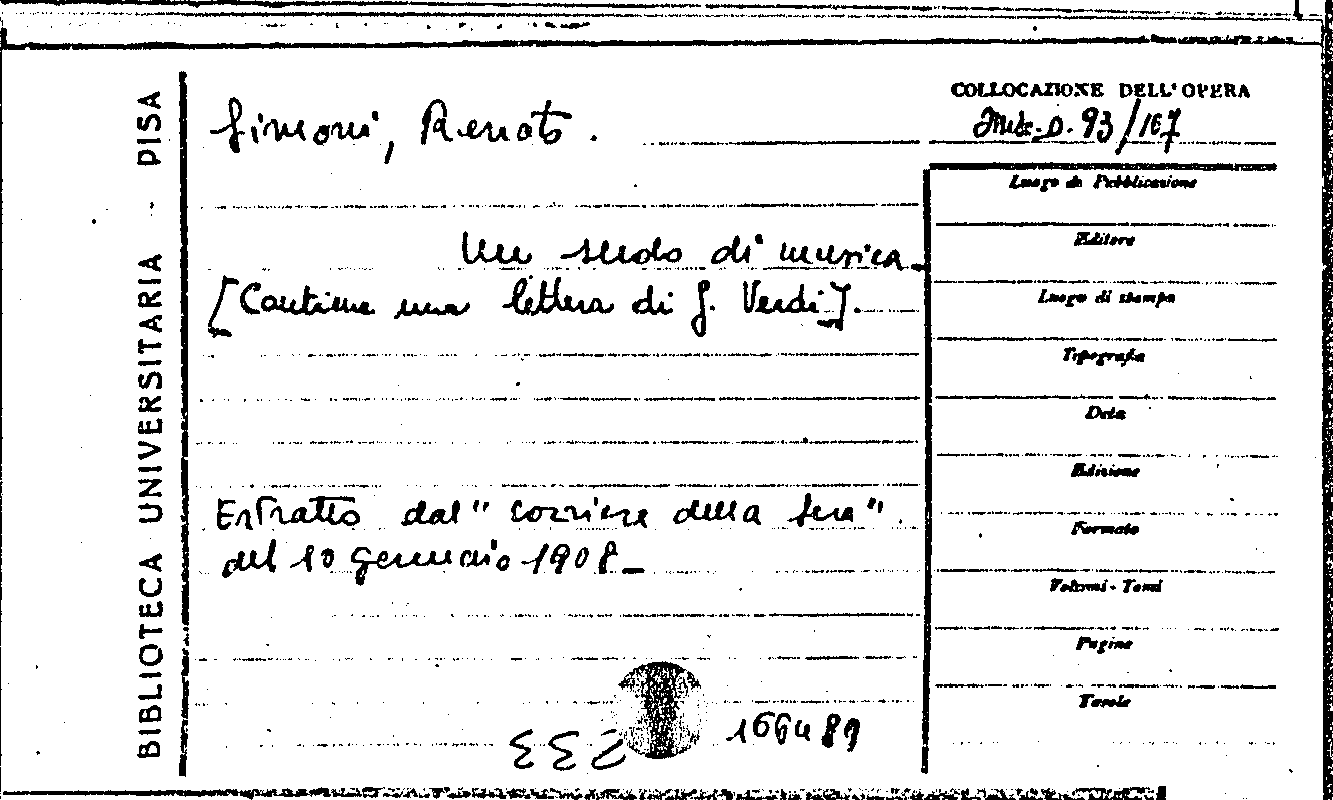 BIBLIOTECA UNIVERSITARIA - PISA
COLLOCAZIONE DELL'OPERA
Misc. D. 93/167
Simoni, Renato.
Luogo di Pubblicazione
Un sordo di musica.
Editore
[Contiene una lettera di G. Verdi].
Luogo di stampa
Tipografia
Data
Edizione
Estratto dal "Corriere della Sera"
Formato
del 10 gennaio 1908
Volumi - Tomi
Pagine
Tavole